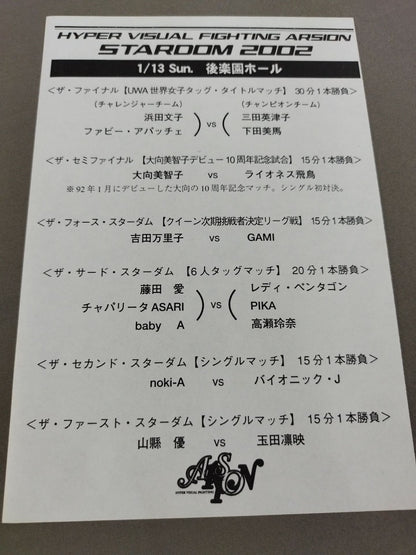 HYPER VISUAL FIGHTING ARSION
STARDOM 2002
1/13 Sun. 後楽園ホール
＜ザ・ファイナル【UWA世界女子タッグ・タイトルマッチ】 30分1本勝負＞
（チャレンジャーチーム） （チャンピオンチーム）
浜田文子 三田英津子
) vs (
ファビー・アパッチェ 下田美馬
＜ザ・セミファイナル【大向美智子デビュー10周年記念試合】 15分1本勝負＞
大向美智子 vs ライオネス飛鳥
※92年1月にデビューした大向の10周年記念マッチ。シングル初対決。
＜ザ・フォース・スターダム【クイーン次期挑戦者決定リーグ戦】 15分1本勝負＞
吉田万里子 vs GAMI
＜ザ・サード・スターダム 【6人タッグマッチ】 20分1本勝負＞
藤田 愛 レディ・ペンタゴン
チャパリータASARI ) vs ( PIKA
baby A 高瀬玲奈
＜ザ・セカンド・スターダム【シングルマッチ】 15分1本勝負＞
noki-A vs バイオニック・J
＜ザ・ファースト・スターダム【シングルマッチ】 15分1本勝負＞
山縣 優 vs 玉田凛映
ARSION
HYPER VISUAL FIGHTING